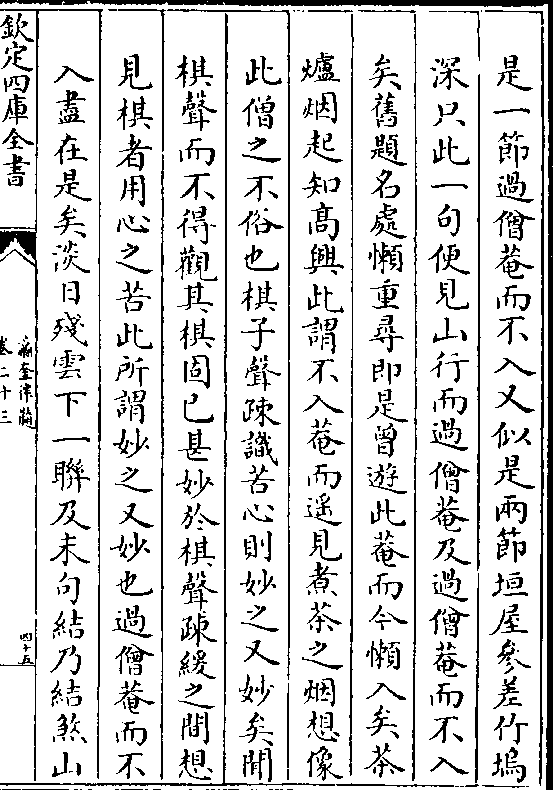 是一節過僧菴而不入又似是兩節垣屋參差竹塢
深只此一句便見山行而過僧菴及過僧菴而不入
矣舊題名處懶重尋即是曾遊此菴而今懶入矣茶
爐烟起知髙興此謂不入菴而遥見煮茶之烟想像
此僧之不俗也棋子聲疎識苦心則妙之又妙矣聞
棋聲而不得觀其棋固已甚妙於棋聲疎緩之間想
見棋者用心之苦此所謂妙之又妙也過僧菴而不
入盡在是矣淡日殘雲下一聯及末句結乃結煞山
欽定四庫全書
瀛奎律髓
卷二十三
四十五